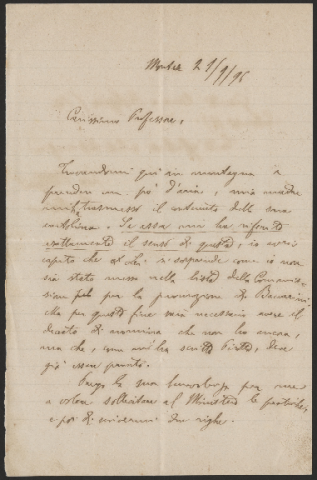 21/9/95
Carissimo Professore,
Trovandomi qui in montagna a
prendere un po' d'aria, mia madre
mi ha trasmesso il contenuto della sua
cartolina. Se essa mi ha riferito
esattamente il senso di questa, io avrei
capito che a Lei si sorprende come io non
sia stato messo nella lista della Commis-
sione per la promozione di
che per questo fine sia necessario avere il
decreto di nomina che non ho ancora,
ma che, come mi ha scritto, deve
già essere pronto.
Prego la sua per me
a volere sollecitare al Ministero la pratica,
e poi di scrivermi due righe.